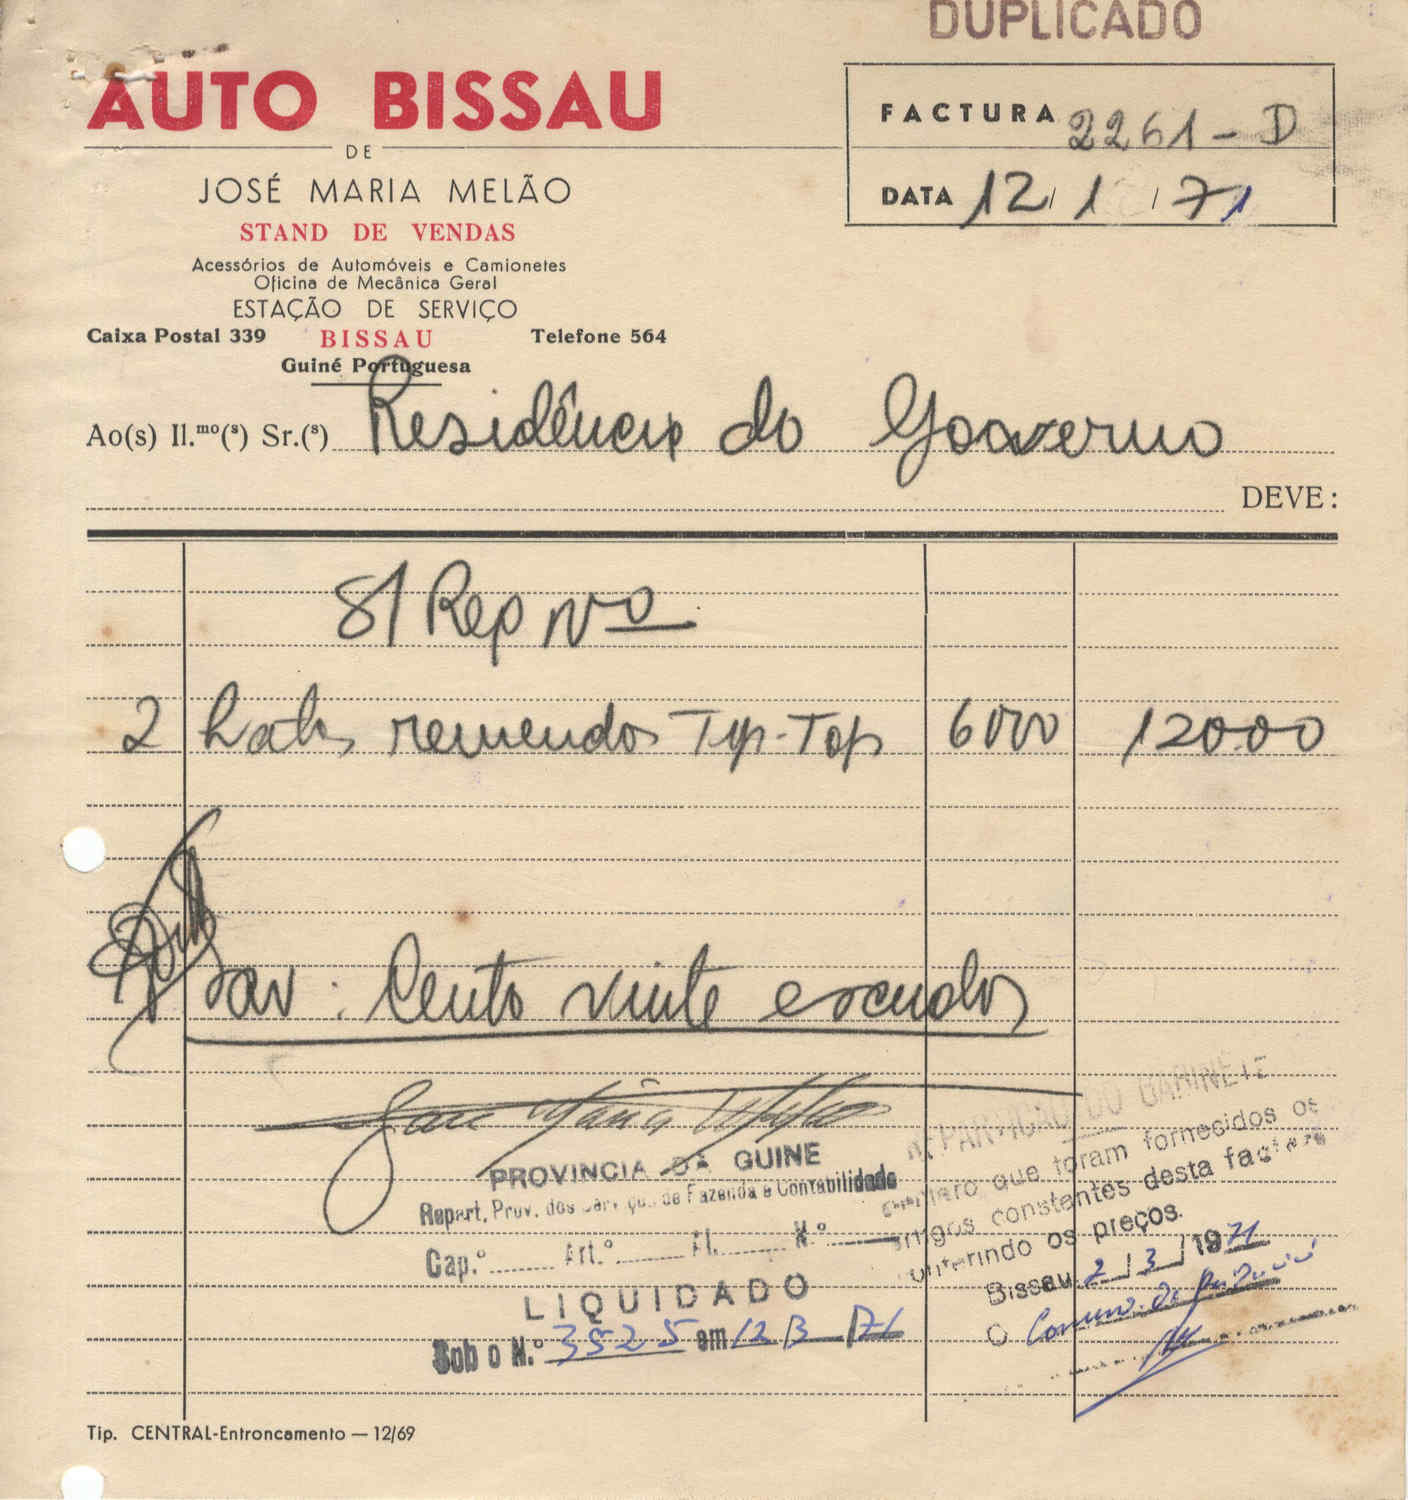 DUPLICADO
AUTO BISSAU
DE
JOSÉ MARIA MELÃO
STAND DE VENDAS
Acessórios de Automóveis e Camionetes
Oficina de Mecânica Geral
ESTAÇÃO DE SERVIÇO
Caixa Postal 339 BISSAU Telefone 564
Guiné Portuguesa
FACTURA 2261-D
DATA 12/1/71
Ao(s) Il.mo(s) Sr.(s) Residência do Governo
DEVE:
S/ Rep Nº
2 latas remendos Tip-Top 6000 12000
São: Cento vinte escudos
José Maria Melão
PROVINCIA DA GUINE
Repart. Prov. dos Serviços de Fazenda e Contabilidade
Cap.º Art.º Al. N.º
LIQUIDADO
Sob o N.º 3525 em 12 3 71
REPARTIÇÃO DO GABINETE
que foram fornecidos os
artigos constantes desta factura
conferindo os preços.
Bissau 2/3/1971
O
Tip. CENTRAL-Entroncamento — 12/69